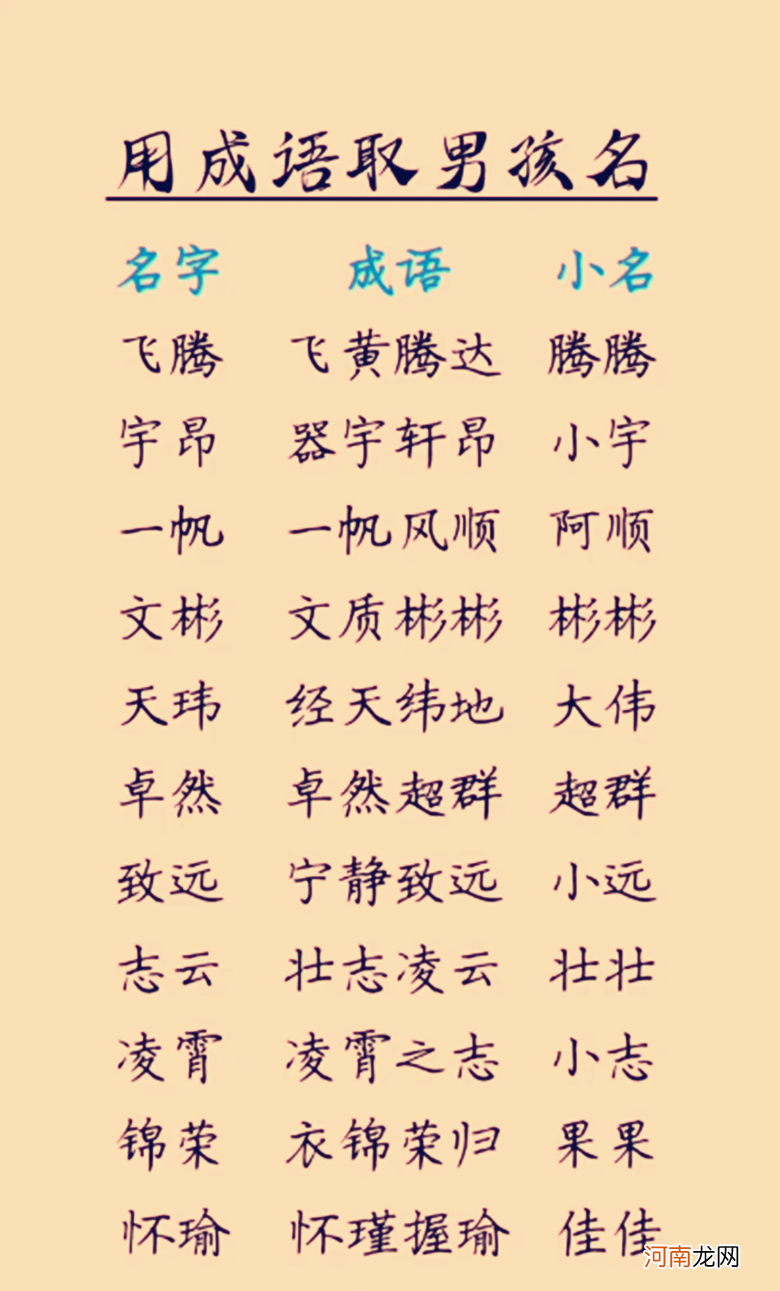 用成语取男孩名
名字 成语 小名
飞腾 飞黄腾达 腾腾
宇昂 器宇轩昂 小宇
一帆 一帆风顺 阿顺
文彬 文质彬彬 彬彬
天玮 经天纬地 大伟
卓然 卓然超群 超群
致远 宁静致远 小远
志云 壮志凌云 壮壮
凌霄 凌霄之志 小志
锦荣 衣锦荣归 果果
怀瑜 怀瑾握瑜 佳佳
河南龙网